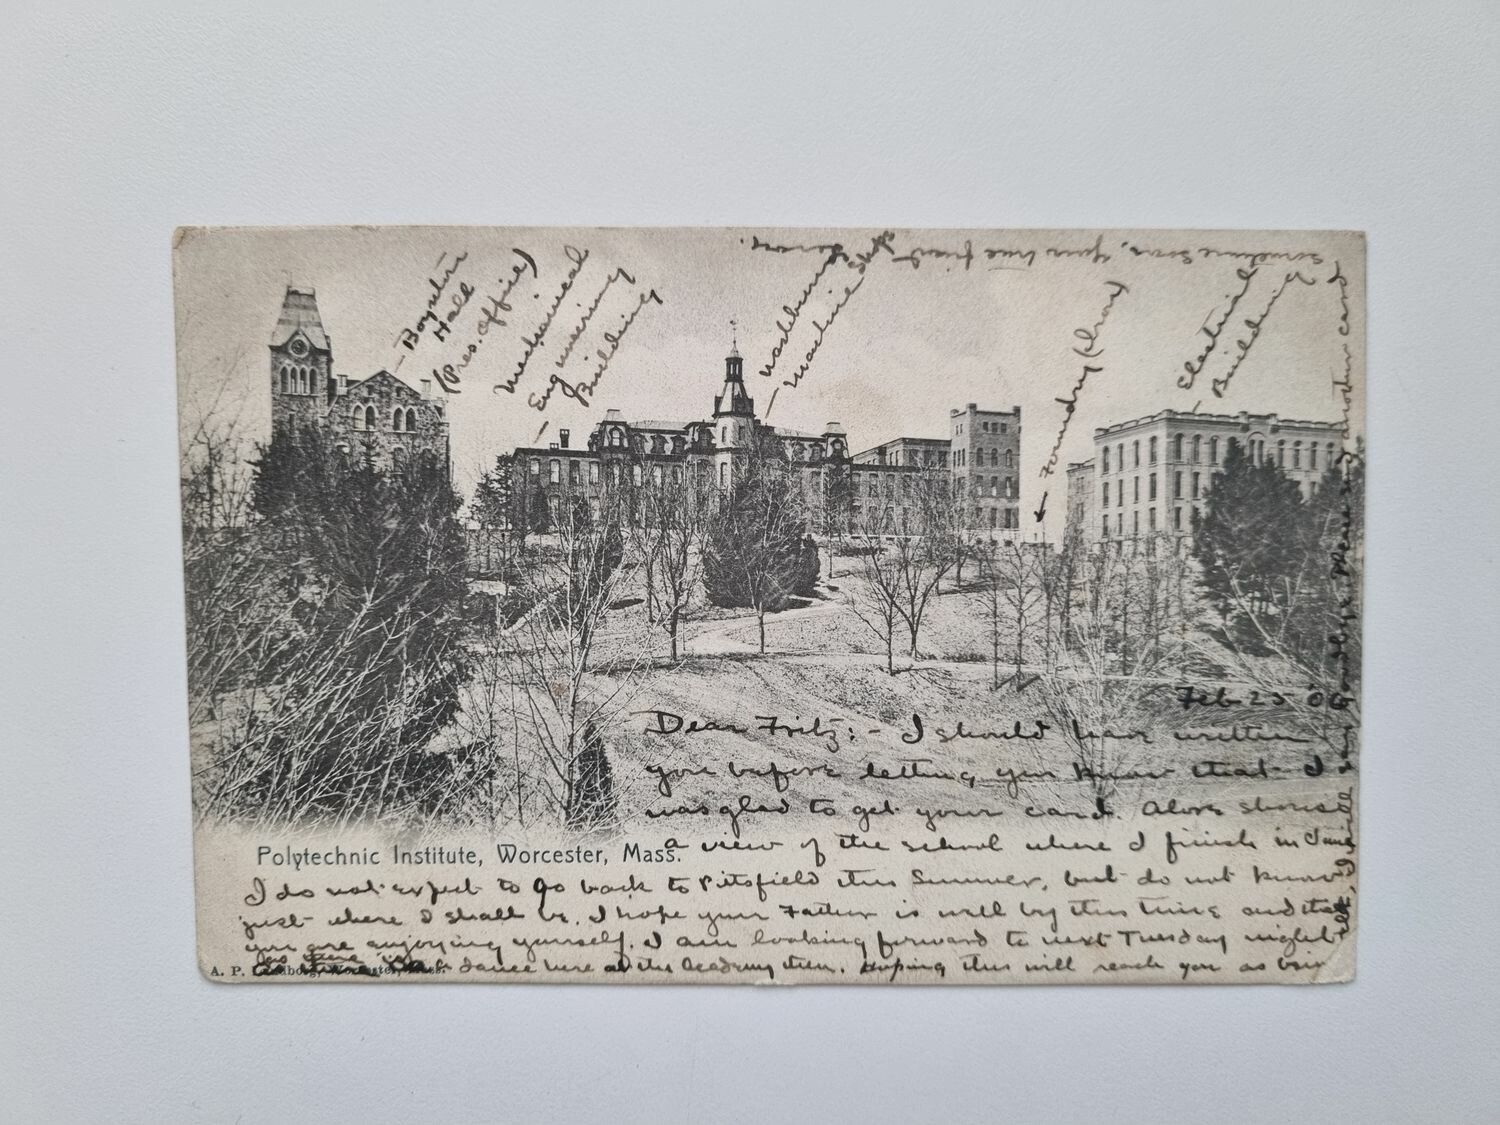 Boynton
Hall
(Pres. Office)
Mechanical
Engineering
Building
Washburn
Machine Shop
Foundry (Iron)
Electrical
Building
Feb 25 '06
Dear Fritz: - I should have written
you before letting you know that I
was glad to get your card. Above shows
a view of the school where I finish in June
Polytechnic Institute, Worcester, Mass.
I do not expect to go back to Pittsfield this Summer, but do not know
just where I shall be. I hope your Father is well by this time and that
you are enjoying yourself. I am looking forward to next Tuesday night
as there is a dance here at the Academy then. Hoping this will reach you as
A. P. Lundborg, Worcester, Mass.
I will say Goodbye Please send another card
sometime soon. Your true friend